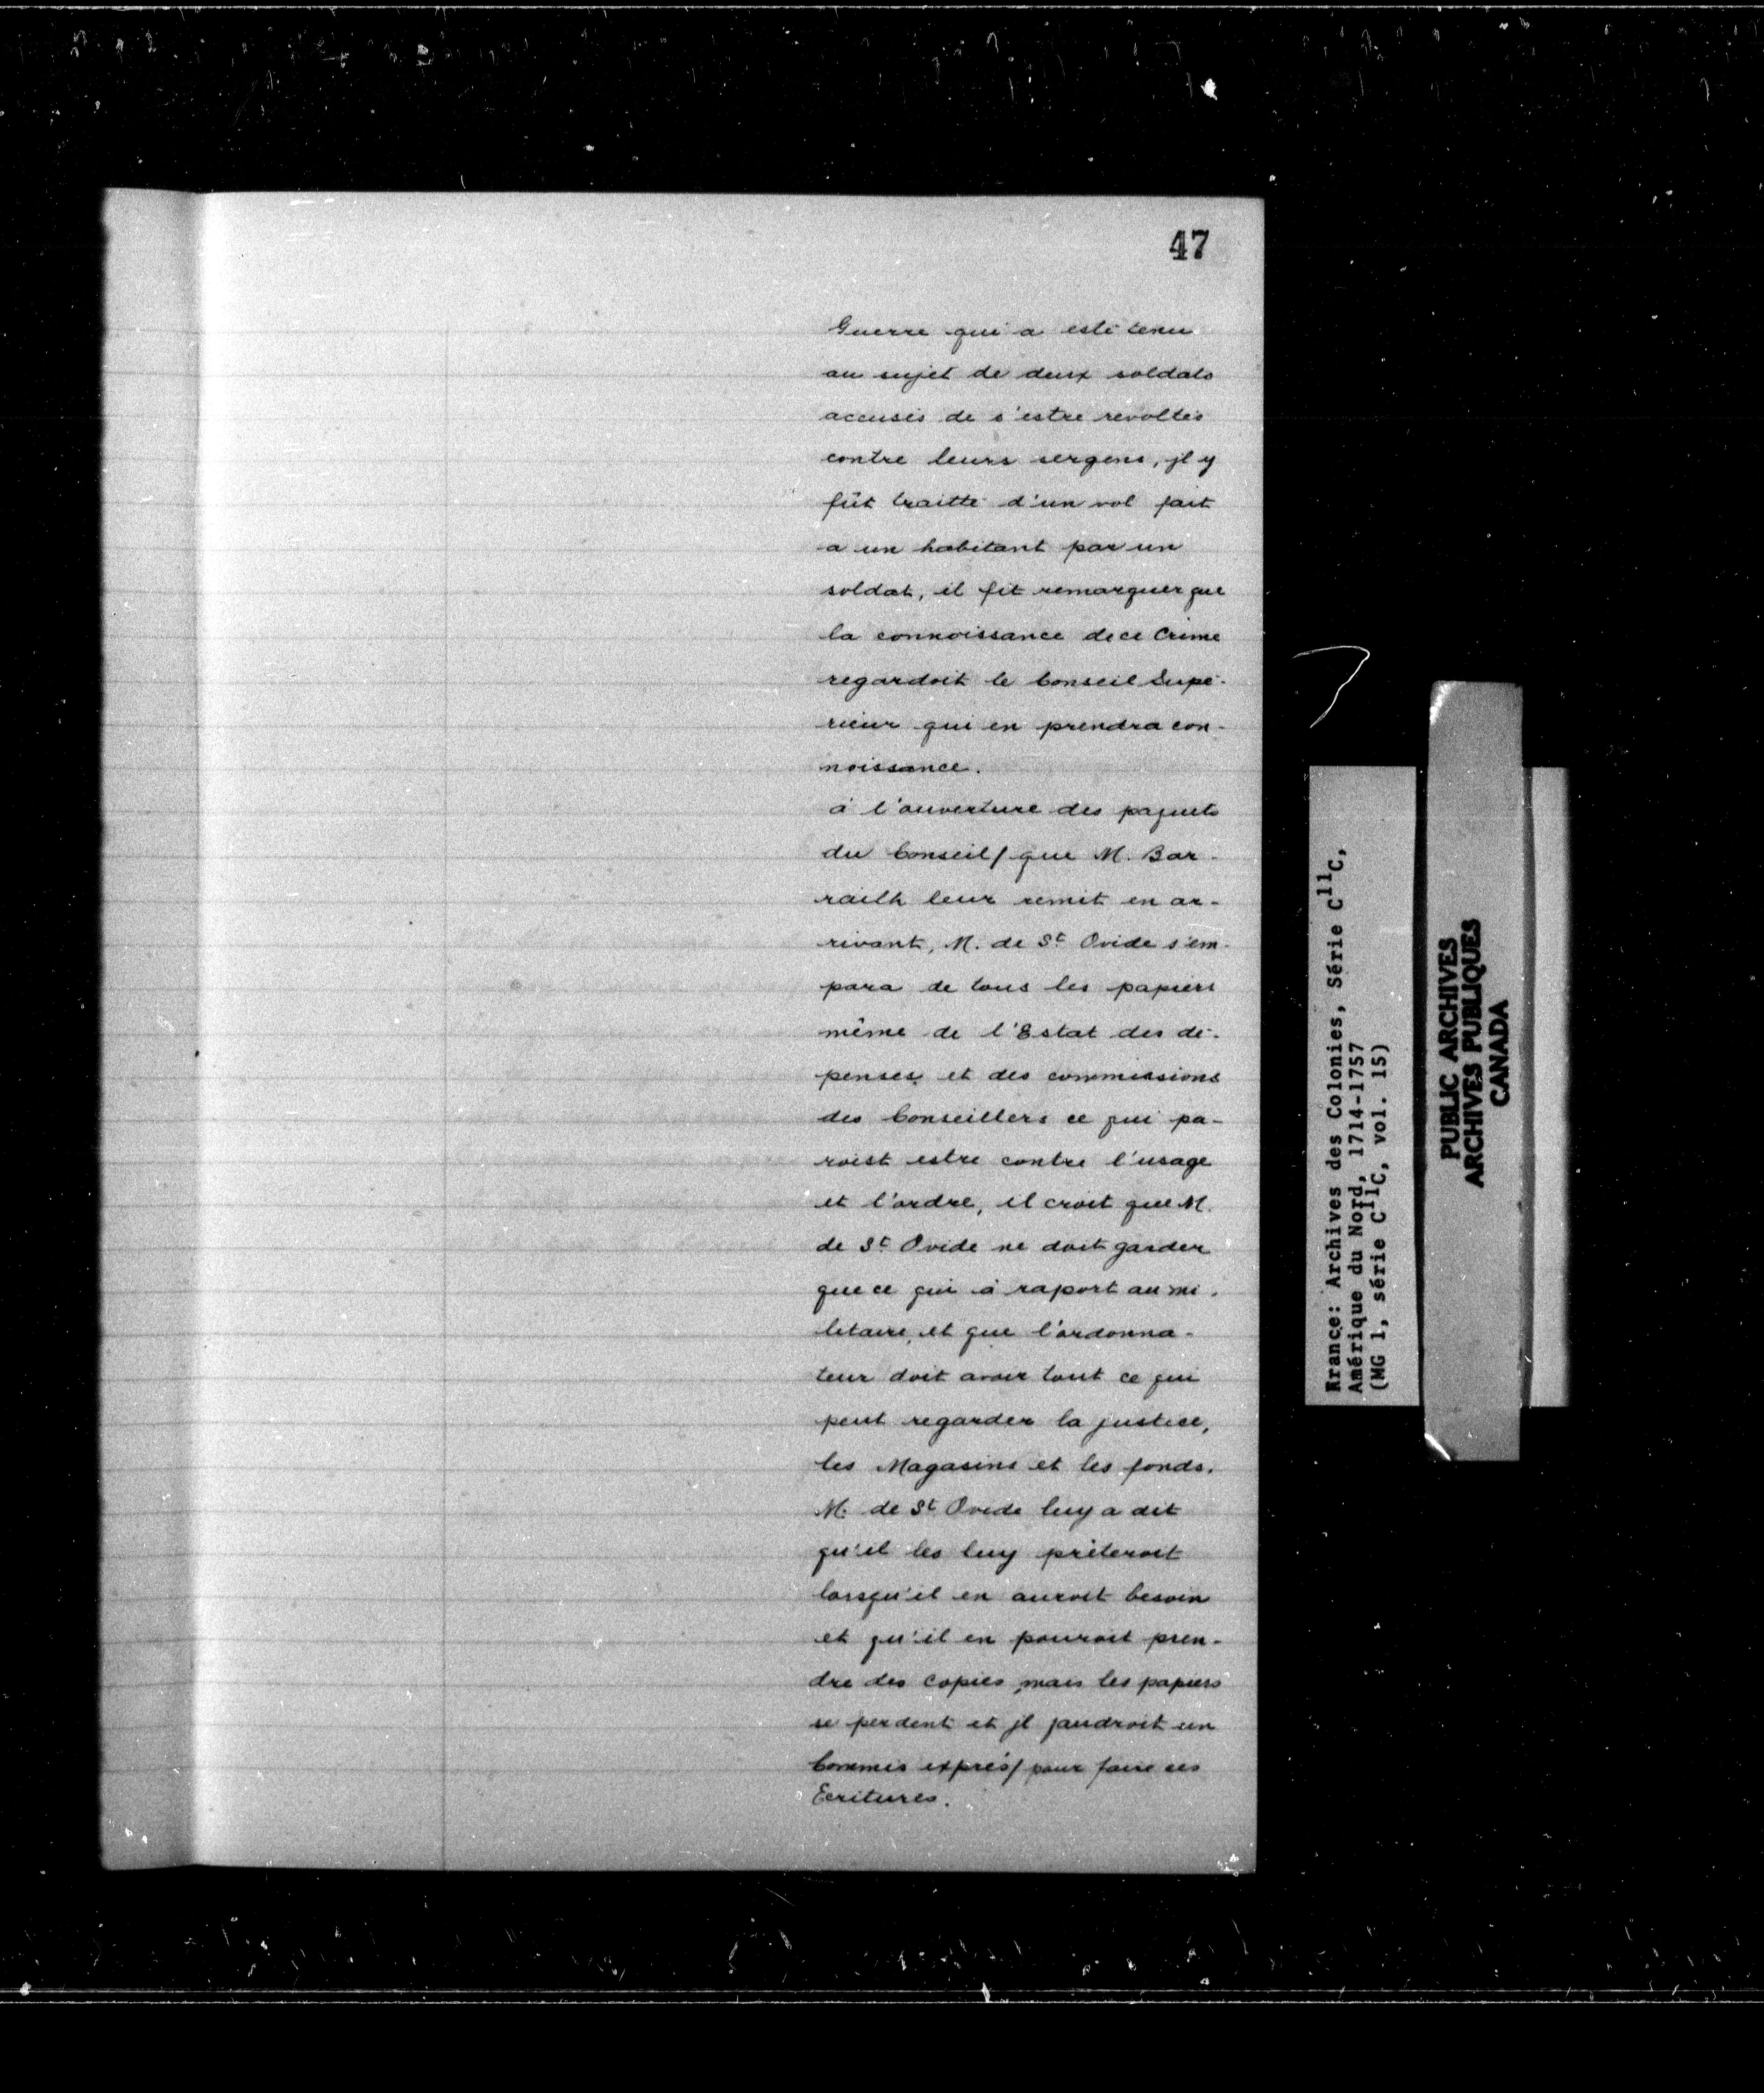 47
Guerre qui a esté tenu
au sujet de deux soldats
accusés de s'estre revoltés
contre leurs sergens, jl y
fût traitté d'un vol fait
a un habitant par un
soldat, il fit remarquer que
la connoissance de ce Crime
regardoit le Conseil Supe-
rieur qui en prendra con-
noissance.
à l'ouverture des paquets
du Conseil/ que M. Bar-
railh leur remit en ar-
rivant, M. de St Ovide s'em-
para de tous les papiers
même de l'Estat des dé-
penses et des commissions
des Conseillers ce qui pa-
roist estre contre l'usage
et l'ordre, il croit que M.
de St Ovide ne doit garder
que ce qui à raport au mi-
litaire, et que l'ordonna-
teur doit avoir tout ce qui
peut regarder la justice,
les Magasins et les fonds.
M. de St Ovide luy a dit
qu'il les luy prêteroit
lorsqu'il en auroit besoin
et qu'il en pouroit pren-
dre des copies, mais les papiers
se perdent et jl faudroit un
Commis exprés/ pour faire ces
Ecritures.
Rrance: Archives des Colonies, Série C11C,
Amérique du Nord, 1714-1757
(MG 1, série C11C, vol. 15)
PUBLIC ARCHIVES
ARCHIVES PUBLIQUES
CANADA